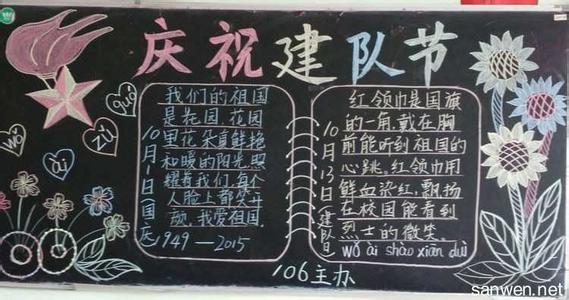 庆祝建队节
wǒ
ài
zǔ
guó
10月1日(国庆
我们的祖国
是花园 花园
里花朵真鲜艳
和暖的阳光照
耀着我们,每个
人脸上都笑开
颜.我爱祖国.
1949—2015
10月13日建队日
红领巾是国旗
的一角,戴在胸
前能听到祖国的
心跳。红领巾用
鲜血染红,飘扬
在校园能看到
烈士的微笑。
wǒ ài shào xiān duì
106主办
sanwen.net